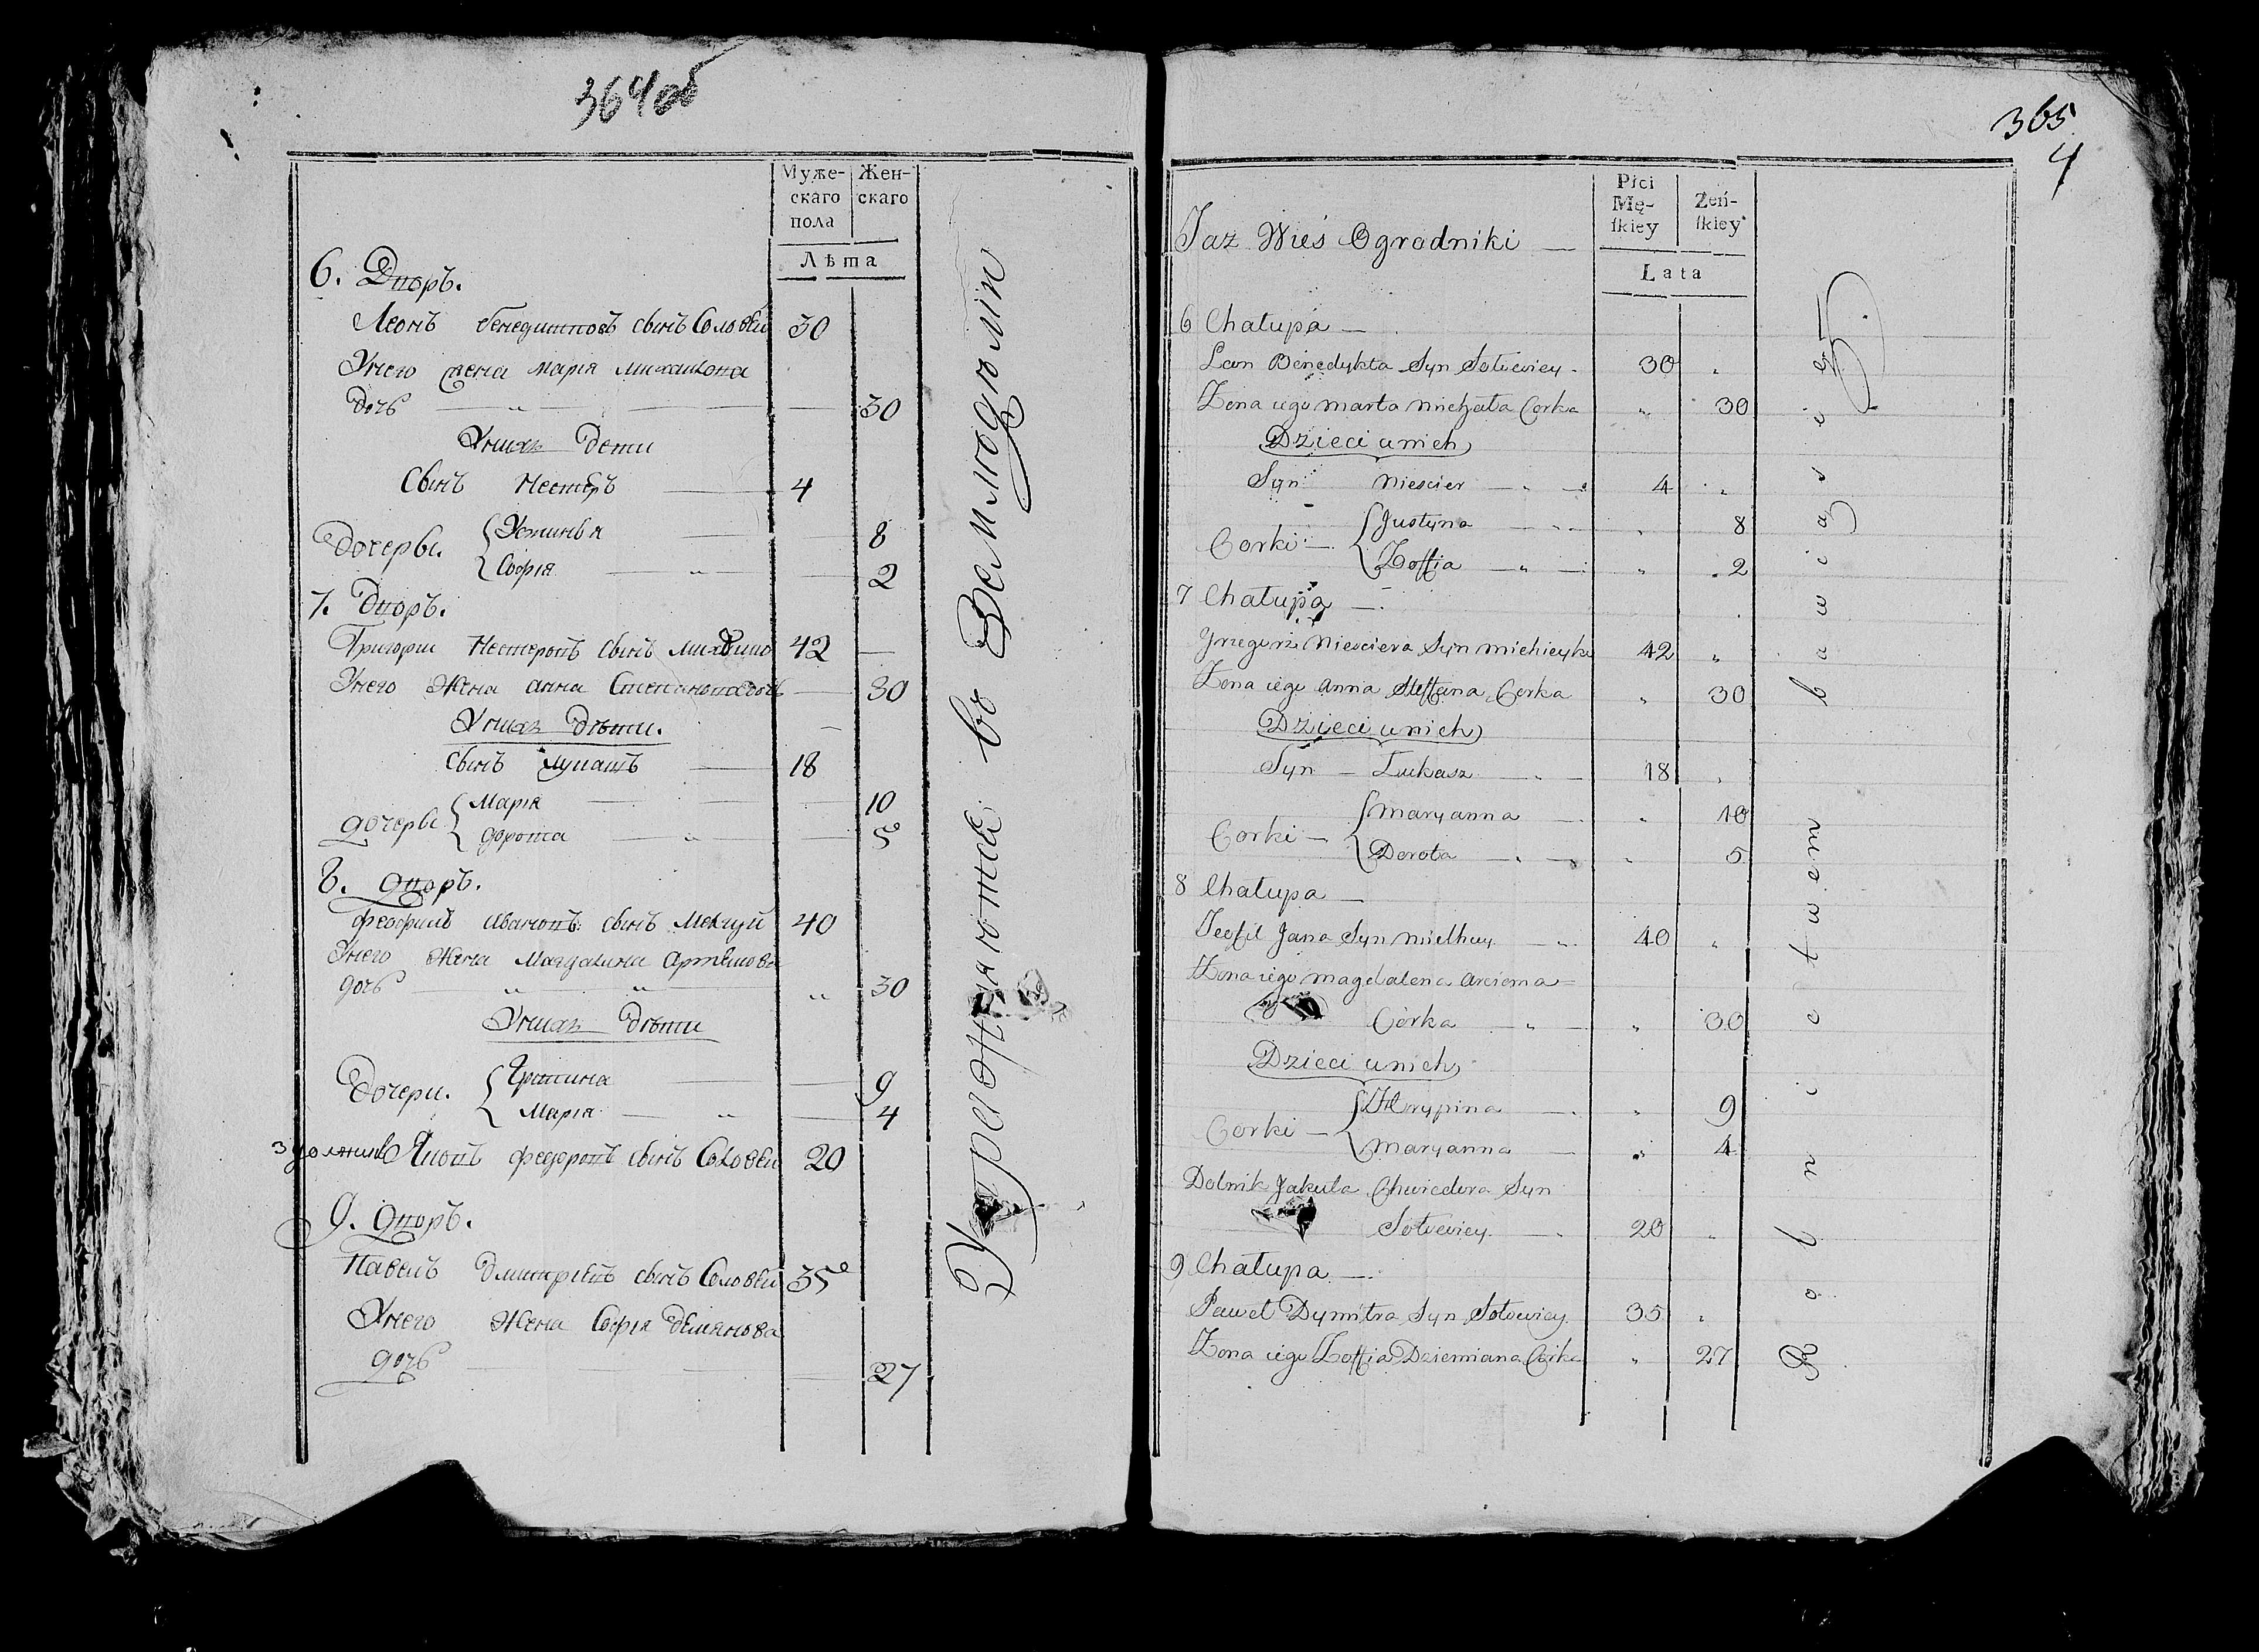 364 об
Муже-
скаго
пола
Жен-
скаго
Лѣта
6. Дворъ.
Леонъ бенедиктовъ сынъ Соловей 30
Унего жена Марія михаилова
дочь 30
Унихъ дети
Сынъ Нестеръ 4
дочерьи
Устинья 8
Софія 2
7. Дворъ.
Григори Нестеровъ сынъ 42
Унего Жена анна Степановадочь 30
Унихъ дѣти.
сынъ лукашъ 18
дочерьи
Марія 10
дорота 5
8. дворъ.
феофилъ ивановъ сынъ 40
Унего Жена Магдалина Артемова
дочь 30
Унихъ дѣти
дочери.
9
Марія 4
федоровъ сынъ Соловей 20
9. дворъ.
Павелъ дмитріевъ сынъ Соловей 35
Унего Жена Софія демянова
дочь 27
Упражняются во Земледѣліи
365
4
Płci
Mę-
skiey
Żeń-
skiey
Lata
Taż Wieś Ogrodniki
6 Chałupa
Leon Benedykta Syn Sołowiey 30
Żona iego marta michała Corka 30
Dzieci unich
Syn Niescier 4
Corki
Justyna 8
Zoffia 2
7 Chałupa
Grzegorz Niesciera Syn michieyko 42
Żona iego anna Steffana Corka 30
Dzieci unich
Syn Łukasz 18
Corki
Maryanna 10
Dorota 5
8 Chałupa
Teofil Jana Syn 40
Żona iego magdalena arcioma
Córka 30
Dzieci unich
Corki
Hrypina 9
Maryanna 4
Dolnik Jakuła Chwiedora Syn
Sołowiey 20
9 Chałupa
Paweł Dymitra Syn Sołowiey 35
Żona iego Zoffia Dziemiana Córka 27
Rolnictwem bawią się